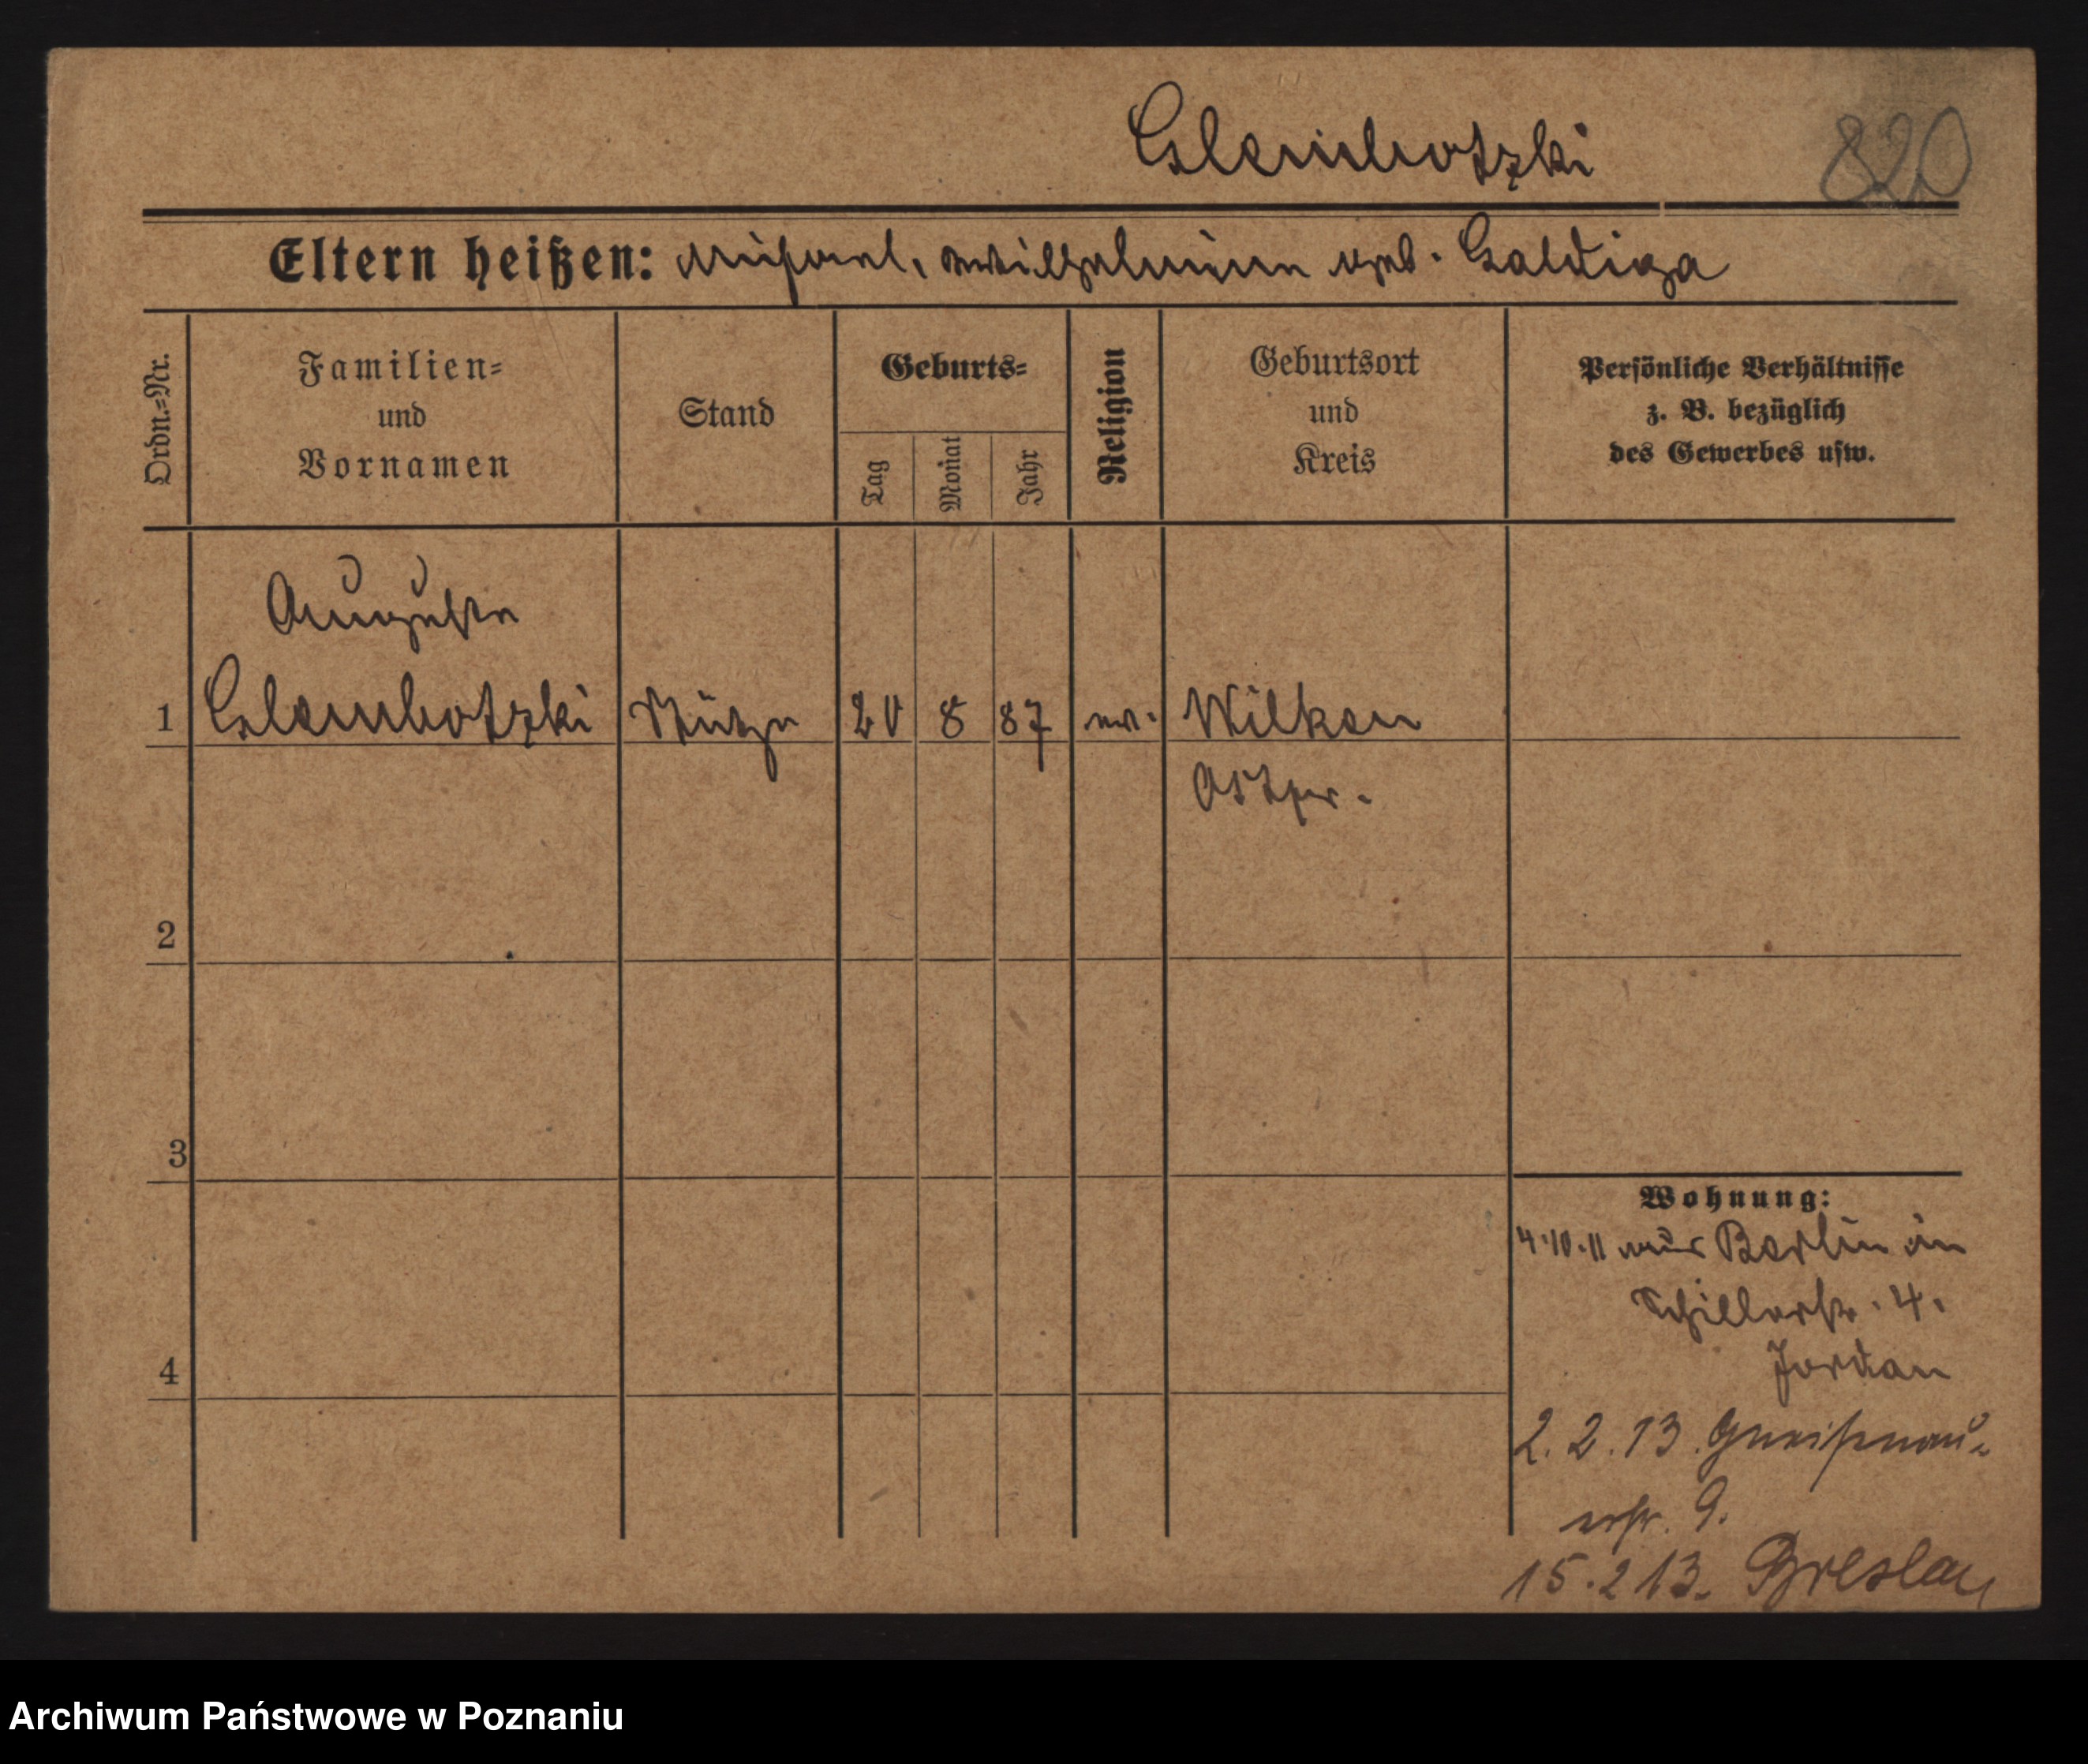 Glembotzki
820
Eltern heißen: Michael, Wilhelmine geb. Galdiga
Ordn.=Nr.
Familien=
und
Vornamen
Stand
Geburts=
Tag
Monat
Jahr
Religion
Geburtsort
und
Kreis
Persönliche Verhältnisse
z. B. bezüglich
des Gewerbes usw.
Auguste
1 Glembotzki Stütze 20 8 87 ev. Wilken
Ostpr.
2
3
4
Wohnung:
4.10.11 aus Berlin in
Schillerstr. 4.
Jordan
2.2.13. Gneisenau=
str. 9.
15.2 13. Breslau
Archiwum Państwowe w Poznaniu